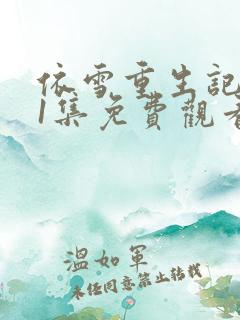 依雪重生記
1集免費觀看
溫如軍
未经同意禁止转载